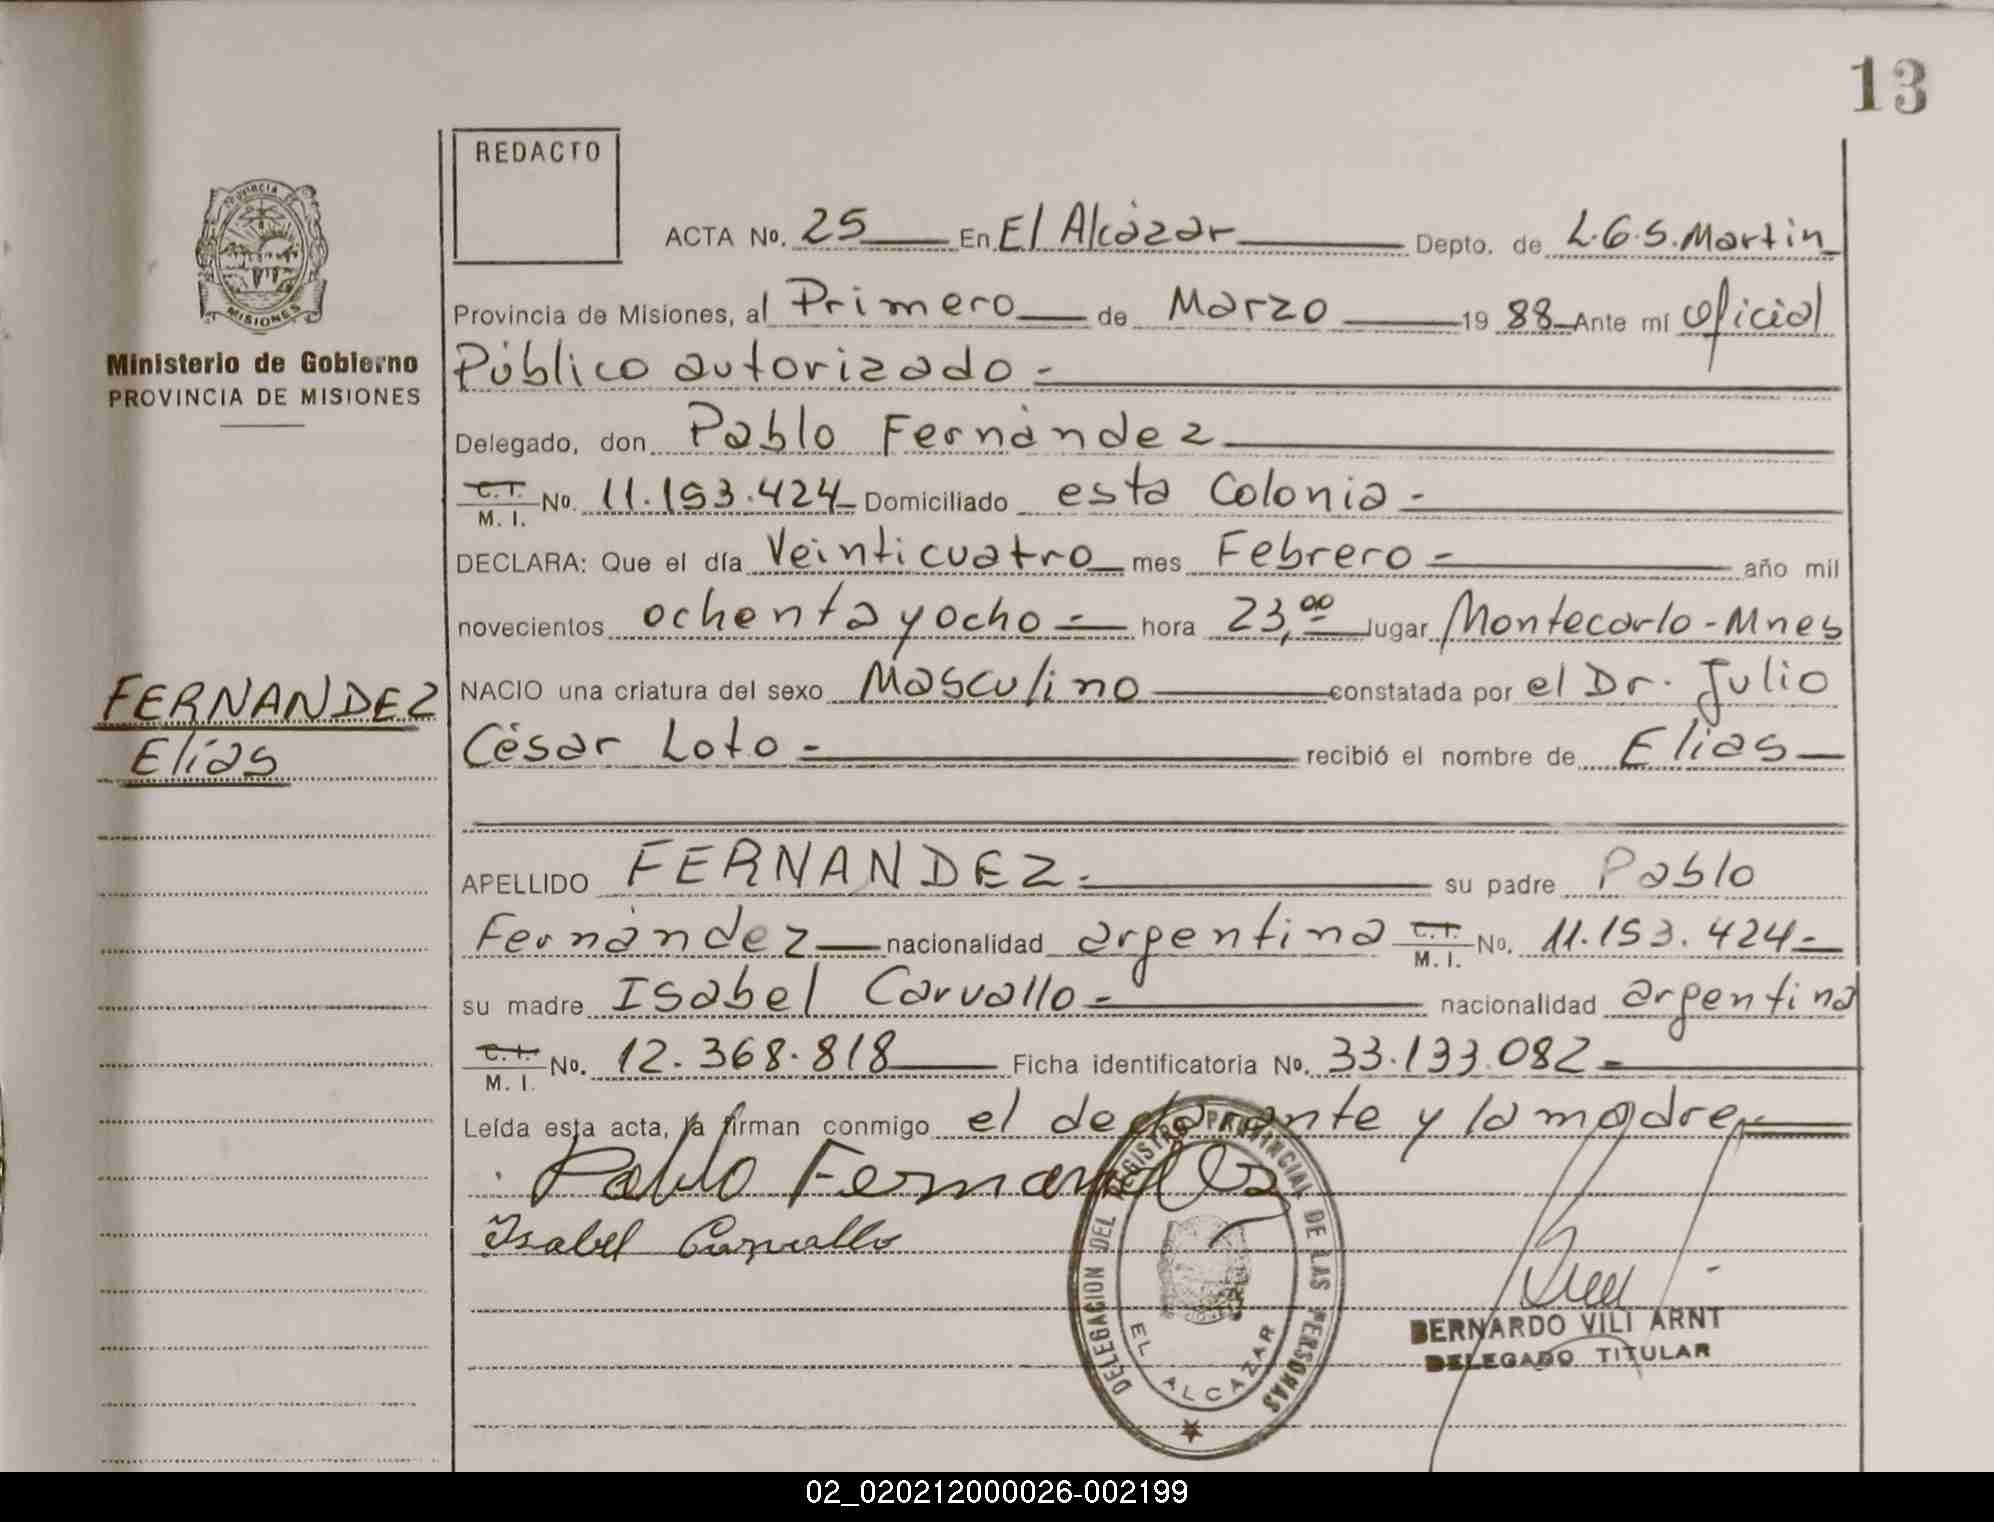 13
REDACTO
PROVINCIA DE
MISIONES
ACTA No. 25 En El Alcázar Depto. de L.G.S. Martin
Provincia de Misiones, al Primero de Marzo 19 88 Ante mí oficial
Ministerio de Gobierno
PROVINCIA DE MISIONES
Público autorizado -
Delegado, don Pablo Fernández
C.I. M. I. No. 11.153.424 Domiciliado esta Colonia -
DECLARA: Que el día Veinticuatro mes Febrero - año mil
novecientos ochenta y ocho - hora 23,00 lugar Montecarlo - Mnes
FERNANDEZ
Elías
NACIO una criatura del sexo Masculino constatada por el Dr. Julio
César Loto - recibió el nombre de Elías
APELLIDO FERNANDEZ - su padre Pablo
Fernández nacionalidad argentina C.I. M. I. No. 11.153.424 -
su madre Isabel Carvallo - nacionalidad argentina
C.I. M. I. No. 12.368.818 Ficha identificatoria No. 33.133.082 -
Leída esta acta, la firman conmigo el declarante y la madre
Pablo Fernandez
Isabel Carvallo
DELEGACION DEL REGISTRO PROVINCIAL DE LAS PERSONAS
EL ALCAZAR
BERNARDO VILI ARNT
DELEGADO TITULAR
02_020212000026-002199